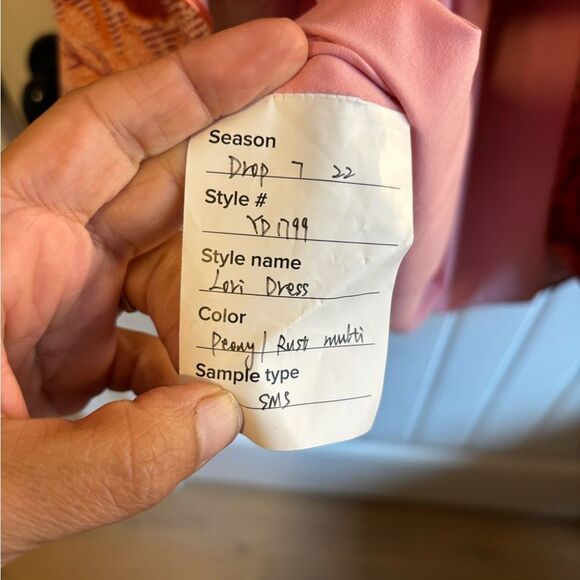 Season
Drop 7 22
Style #
YD1799
Style name
Lori Dress
Color
Peony / Rust multi
Sample type
SMS